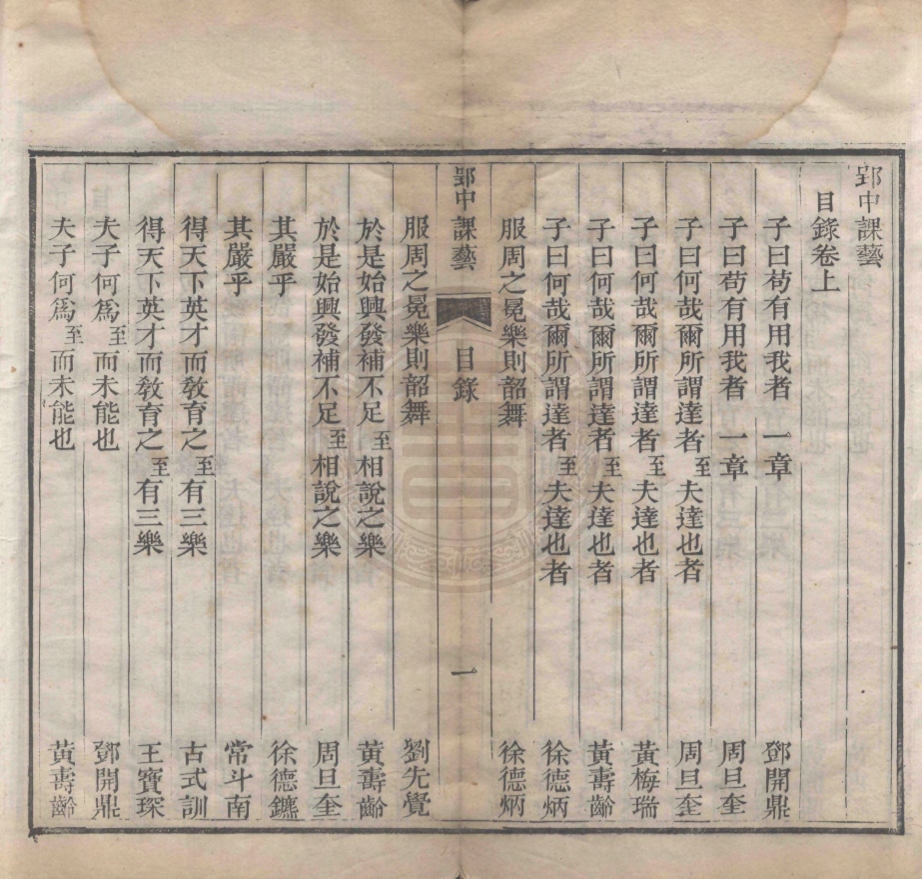 郢中課藝
目錄卷上
子曰苟有用我者 一章 鄧開鼎
子曰苟有用我者 一章 周旦奎
子曰何哉爾所謂達者至夫達也者 周旦奎
子曰何哉爾所謂達者至夫達也者 黃梅瑞
子曰何哉爾所謂達者至夫達也者 黃壽齡
子曰何哉爾所謂達者至夫達也者 徐德炳
服周之冕樂則韶舞 徐德炳
郢中課藝 目錄 一
服周之冕樂則韶舞 劉先覺
於是始興發補不足至相說之樂 黃壽齡
於是始興發補不足至相說之樂 周旦奎
其嚴乎 徐德鑣
其嚴乎 常斗南
得天下英才而敎育之至有三樂 古式訓
得天下英才而敎育之至有三樂 王寶琛
夫子何爲至而未能也 鄧開鼎
夫子何爲至而未能也 黃壽齡